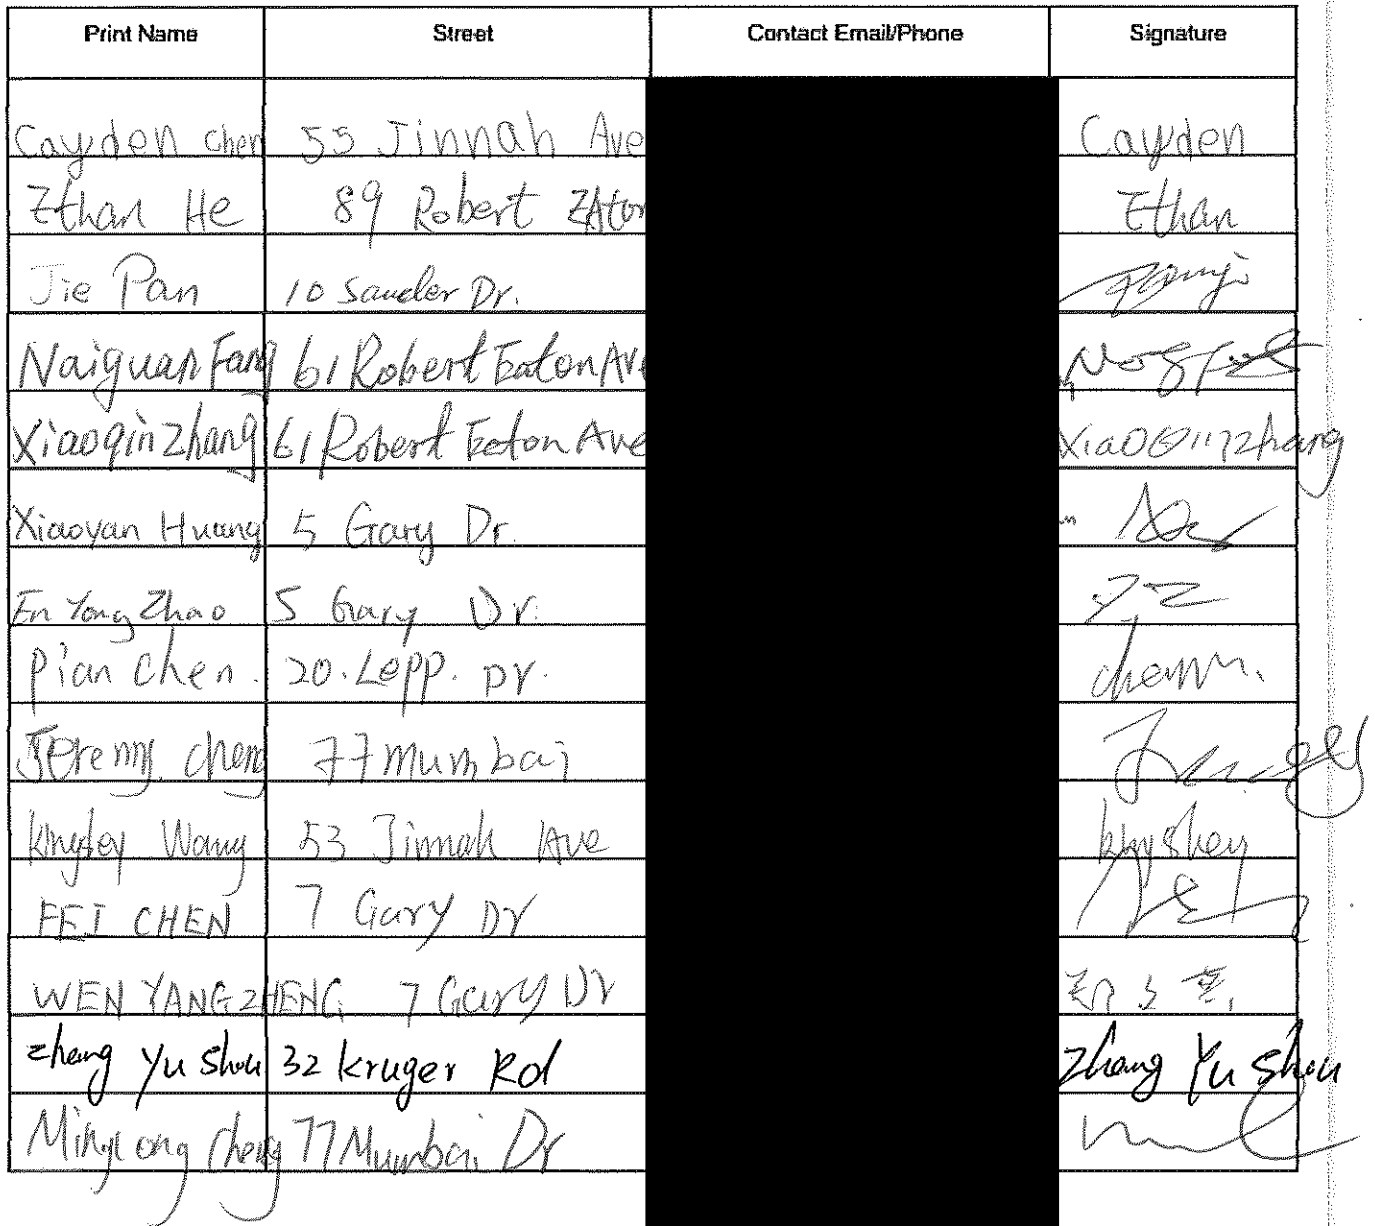 Print Name Street Contact Email/Phone Signature
Cayden Chen 55 Jinnah Ave Cayden
Ethan He 89 Robert EAton Ethan
Jie Pan 10 Sauder Dr.
Naiguan Fang 61 Robert Eaton Ave
Xiaoqin Zhang 61 Robert Eaton Ave Xiao Zhang
Xiaoyan Huang 5 Gary Dr.
En Yong Zhao 5 Gary Dr. YZ
Pian Chen. 20. Lepp. Dr.
Jeremy cheng 77 Mumbai
Wang 53 Jinnah Ave
FEI CHEN 7 Gary Dr
WEN YANG ZHENG 7 Gary Dr 郑
Zhang Yu Shou 32 kruger Rd Zhang Yu Shou
Cheng 77 Mumbai Dr